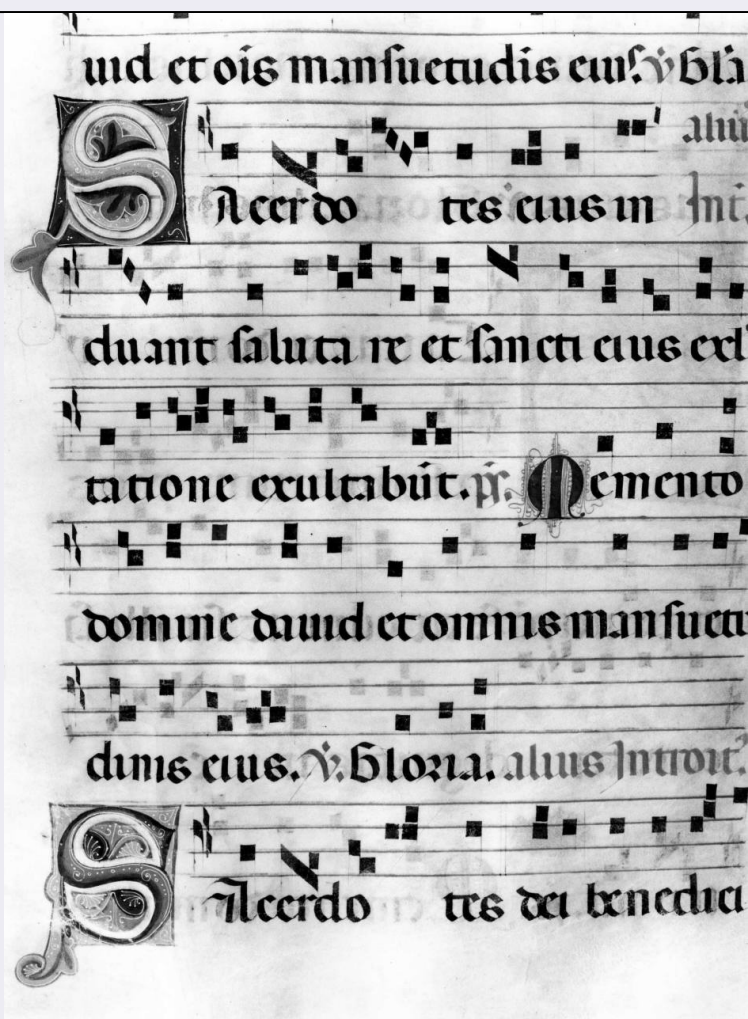 uid et oīs mansuetudis eius. ℣ Gl'a
SAcerdo tes eius in
aliū
Int.
duant saluta re et sancti eius exl
tatione exultabūt. ps. Memento
domine dauid et omnis mansuetu
dinis eius. ℣. Gloria. alius Introit.
SAcerdo tes dei benedici